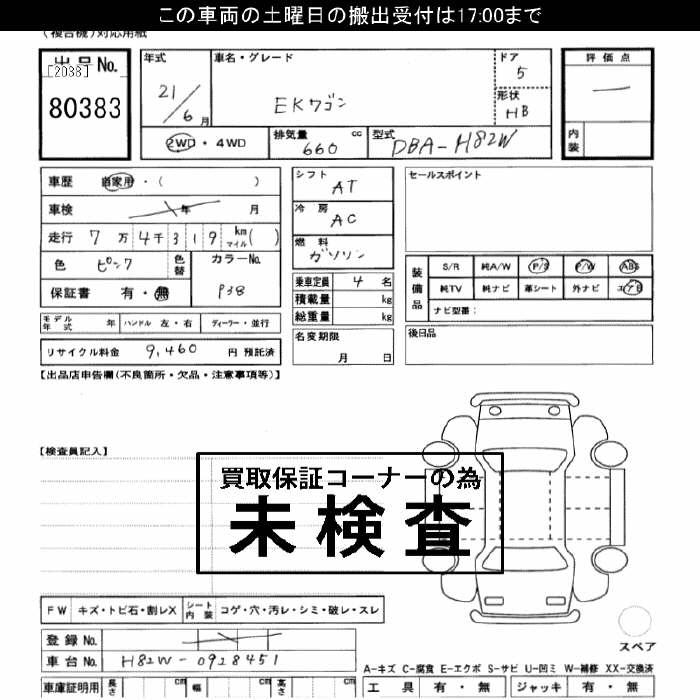 この車両の土曜日の搬出受付は17:00まで
(複合機)対応用紙
出品No.
[2038]
80383
年式
21/6月
車名・グレード
EKワゴン
ドア
5
形状
HB
評価点
一
内装
2WD・4WD
排気量
660
cc
型式
DBA-H82W
車歴 自家用・( )
車検 年 月
走行 7万4千319 km マイル( )
色 ピンク
色替
カラーNo.
P38
保証書 有・無
シフト
AT
冷房
AC
燃料
ガソリン
乗車定員 4 名
積載量 kg
総重量 kg
セールスポイント
装備品
S/R 純A/W P/S P/W ABS
純TV 純ナビ 革シート 外ナビ エアB
ナビ型番:
モデル年式 年 ハンドル 左・右 ディーラー・並行
リサイクル料金 9,460 円 預託済
名変期限
月 日
後日品
【出品店申告欄(不良箇所・欠品・注意事項等)】
【検査員記入】
買取保証コーナーの為
未検査
FW キズ・トビ石・割レX
シート内装 コゲ・穴・汚レ・シミ・破レ・スレ
登録No.
車台No. H82W-0928451
スペア
A-キズ C-腐食 E-エクボ S-サビ U-凹ミ W-補修 XX-交換済
車庫証明用 長さ cm 幅 cm 高さ cm
工具 有・無 ジャッキ 有・無